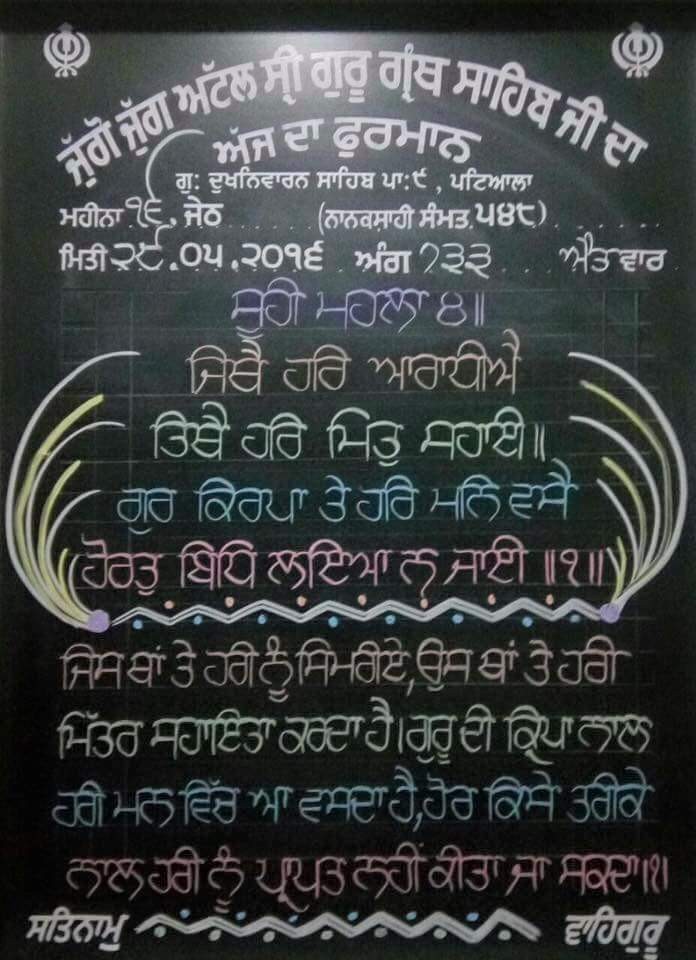 ਜੁੱਗੋ ਜੁੱਗ ਅਟੱਲ ਸ੍ਰੀ ਗੁਰੂ ਗ੍ਰੰਥ ਸਾਹਿਬ ਜੀ ਦਾ
ਅੱਜ ਦਾ ਫੁਰਮਾਨ
ਗੁ: ਦੁਖਨਿਵਾਰਨ ਸਾਹਿਬ ਪਾ:੯ , ਪਟਿਆਲਾ
ਮਹੀਨਾ ੧੬, ਜੇਠ (ਨਾਨਕਸ਼ਾਹੀ ਸੰਮਤ ੫੪੮)
ਮਿਤੀ ੨੯.੦੫.੨੦੧੬ ਅੰਗ ੭੩੩ ਐਤਵਾਰ
ਸੂਹੀ ਮਹਲਾ ੪॥
ਜਿਥੈ ਹਰਿ ਆਰਾਧੀਐ
ਤਿਥੈ ਹਰਿ ਮਿਤੁ ਸਹਾਈ॥
ਗੁਰ ਕਿਰਪਾ ਤੇ ਹਰਿ ਮਨਿ ਵਸੈ
ਹੋਰਤੁ ਬਿਧਿ ਲਇਆ ਨ ਜਾਈ ॥੧॥
ਜਿਸ ਥਾਂ ਤੇ ਹਰੀ ਨੂੰ ਸਿਮਰੀਏ, ਉਸ ਥਾਂ ਤੇ ਹਰੀ
ਮਿੱਤਰ ਸਹਾਇਤਾ ਕਰਦਾ ਹੈ। ਗੁਰੂ ਦੀ ਕ੍ਰਿਪਾ ਨਾਲ
ਹਰੀ ਮਨ ਵਿੱਚ ਆ ਵਸਦਾ ਹੈ, ਹੋਰ ਕਿਸੇ ਤਰੀਕੇ
ਨਾਲ ਹਰੀ ਨੂੰ ਪ੍ਰਾਪਤ ਨਹੀਂ ਕੀਤਾ ਜਾ ਸਕਦਾ।੧।
ਸਤਿਨਾਮੁ ਵਾਹਿਗੁਰੂ